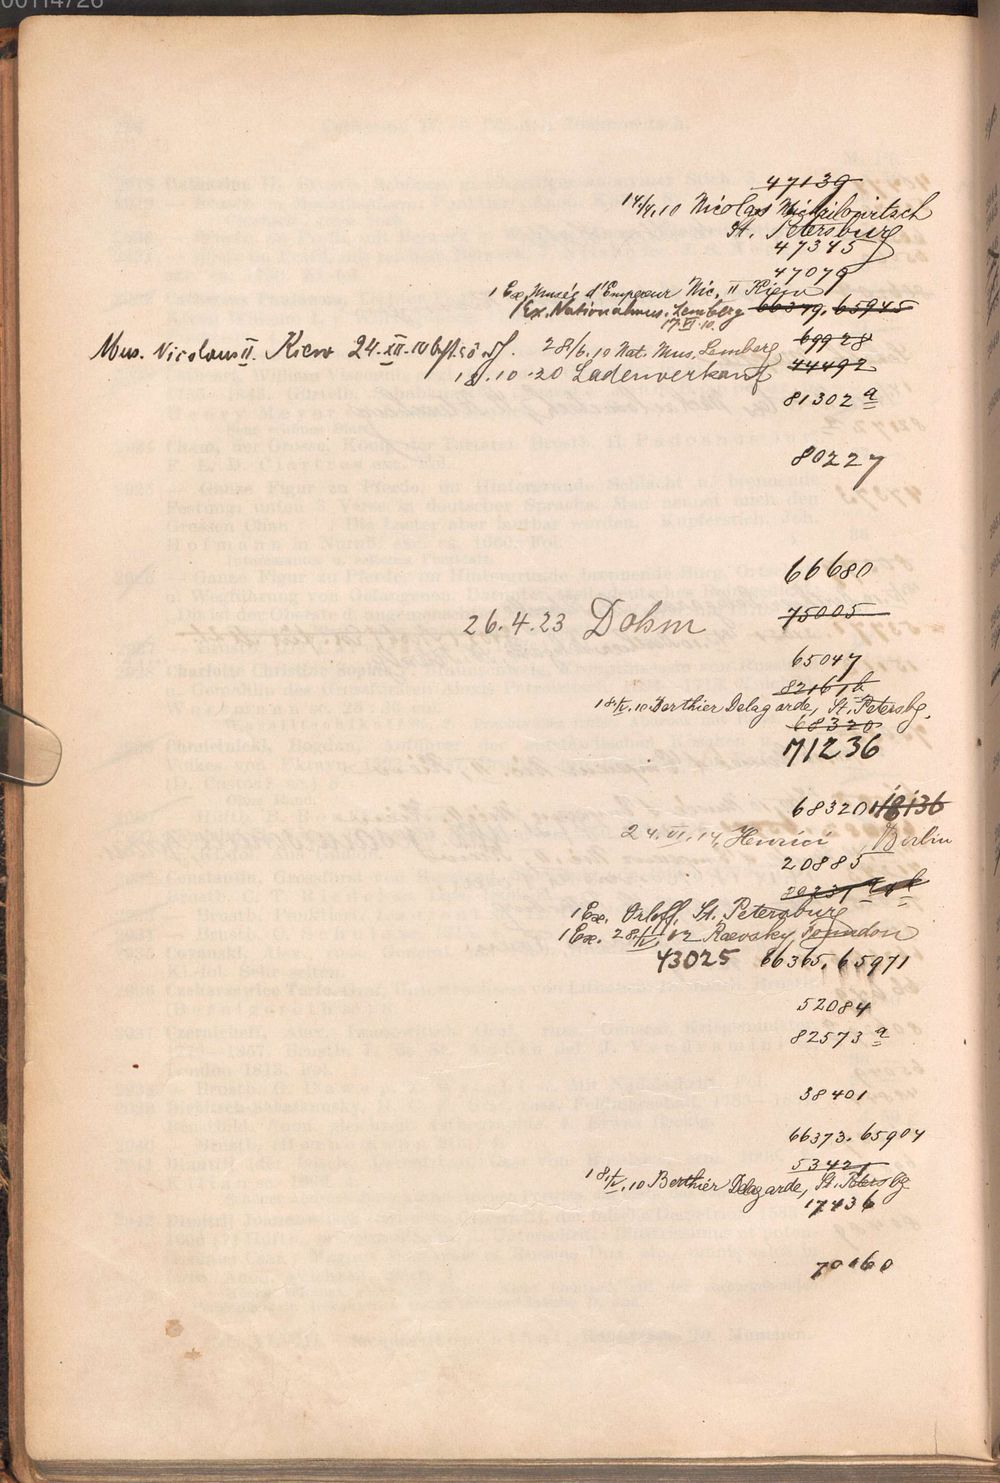 00114726
47139
14/4.10 Nicolas Michailowitsch
St. Petersburg
47345
47079
1 Ex. Musée d'Empereur Nic. II Kiew
1 Ex. Nationalmus. Lemberg 66379. 65945
17.VI.10.
69928
Mus. Nicolaus II. Kiew 24.XII.10 28/6.10 Nat. Mus. Lemberg
44492
10.20 Ladenverkauf
81302 a
80227
66680
75005
26.4.23 Dohm
65047
82161b
18/IV.10 Berthier Delagarde, St. Petersbg.
68320
71236
68320 18136
24.VI.14. Henrici Berlin
20885
1 Ex. Orloff, St. Petersburg
1 Ex. 28/IV 12 Raevsky
43025 66365. 65971
52084
82573 a
38401
66373. 65904
53421
18/IV.10 Berthier Delagarde, St. Petersbg
17436
70160